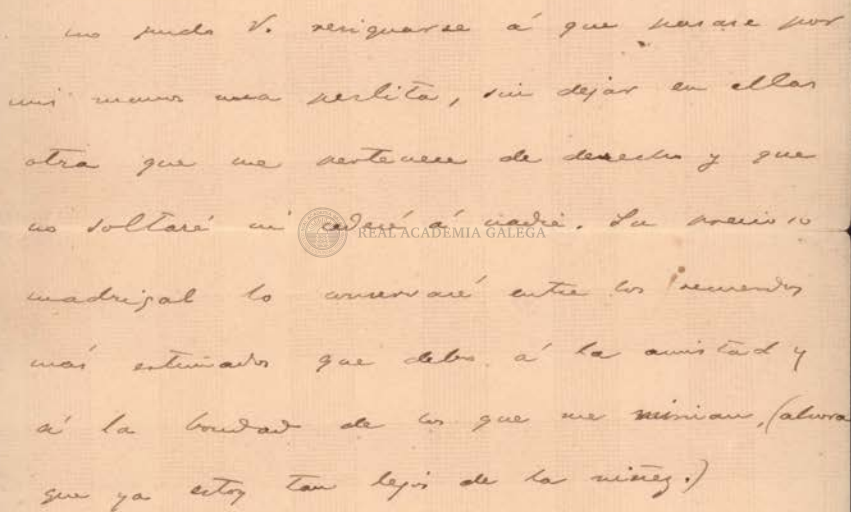 no pudo V. resignarse á que pasase por
mis manos una perlita, sin dejar en ellas
otra que me pertenece de derecho y que
no soltaré ni cederé á nadie. Su precioso
REAL ACADEMIA GALEGA
madrigal lo conservaré entre los recuerdos
más estimados que debo á la amistad y
á la bondad de los que me miman, (ahora
que ya estoy tan lejos de la niñez.)